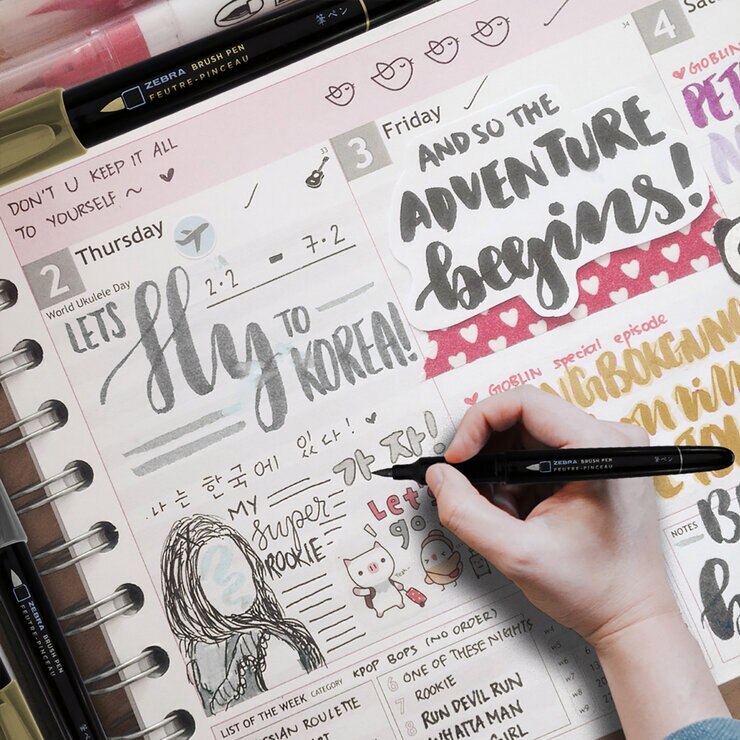 ZEBRA BRUSH PEN
FEUTRE-PINCEAU
筆ペン
DON'T U KEEP IT ALL
TO YOURSELF ~
33
2 Thursday
World Ukulele Day
2.2 - 7.2
LETS fly TO KOREA!
나는 한국에 있다!
가자!
MY
super
ROOKIE
Let's
go
3 Friday
34
AND SO THE
ADVENTURE
begins!
GOBLIN special episode
4
GOBLIN
NOTES
ZEBRA BRUSH PEN
FEUTRE-PINCEAU
筆ペン
ZEBRA BRUSH PEN
FEUTRE-PINCEAU
筆ペン
LIST OF THE WEEK CATEGORY KPOP BOPS (NO ORDER)
ROULETTE
6 ONE OF THESE NIGHTS
7 ROOKIE
8 RUN DEVIL RUN
WHATTA MAN
GIRL